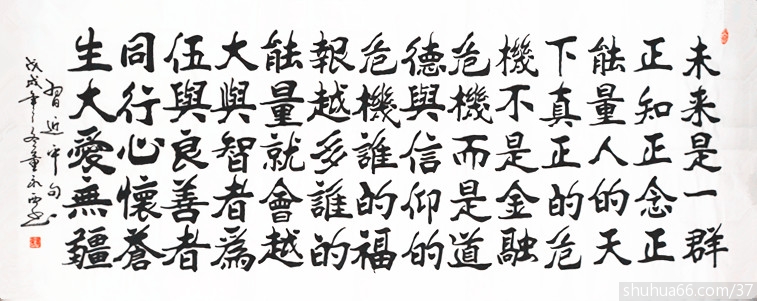 未来是一群
正知正念正
能量人的天
下真正的危
機不是金融
危機而是道
德與信仰的
危機誰的福
報越多誰的
能量就會越
大與智者為
伍與良善者
同行心懷蒼
生大愛無疆
習近平句
戊戌年冬
shuhua66.com/37